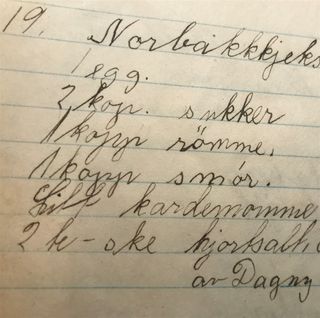 19. Norbakkkjeks
1 egg.
2 kop. sukker
1 kopp römme,
1 kopp smör.
Litt kardemomme,
2 te-ske hjortsalt,
av Dagny